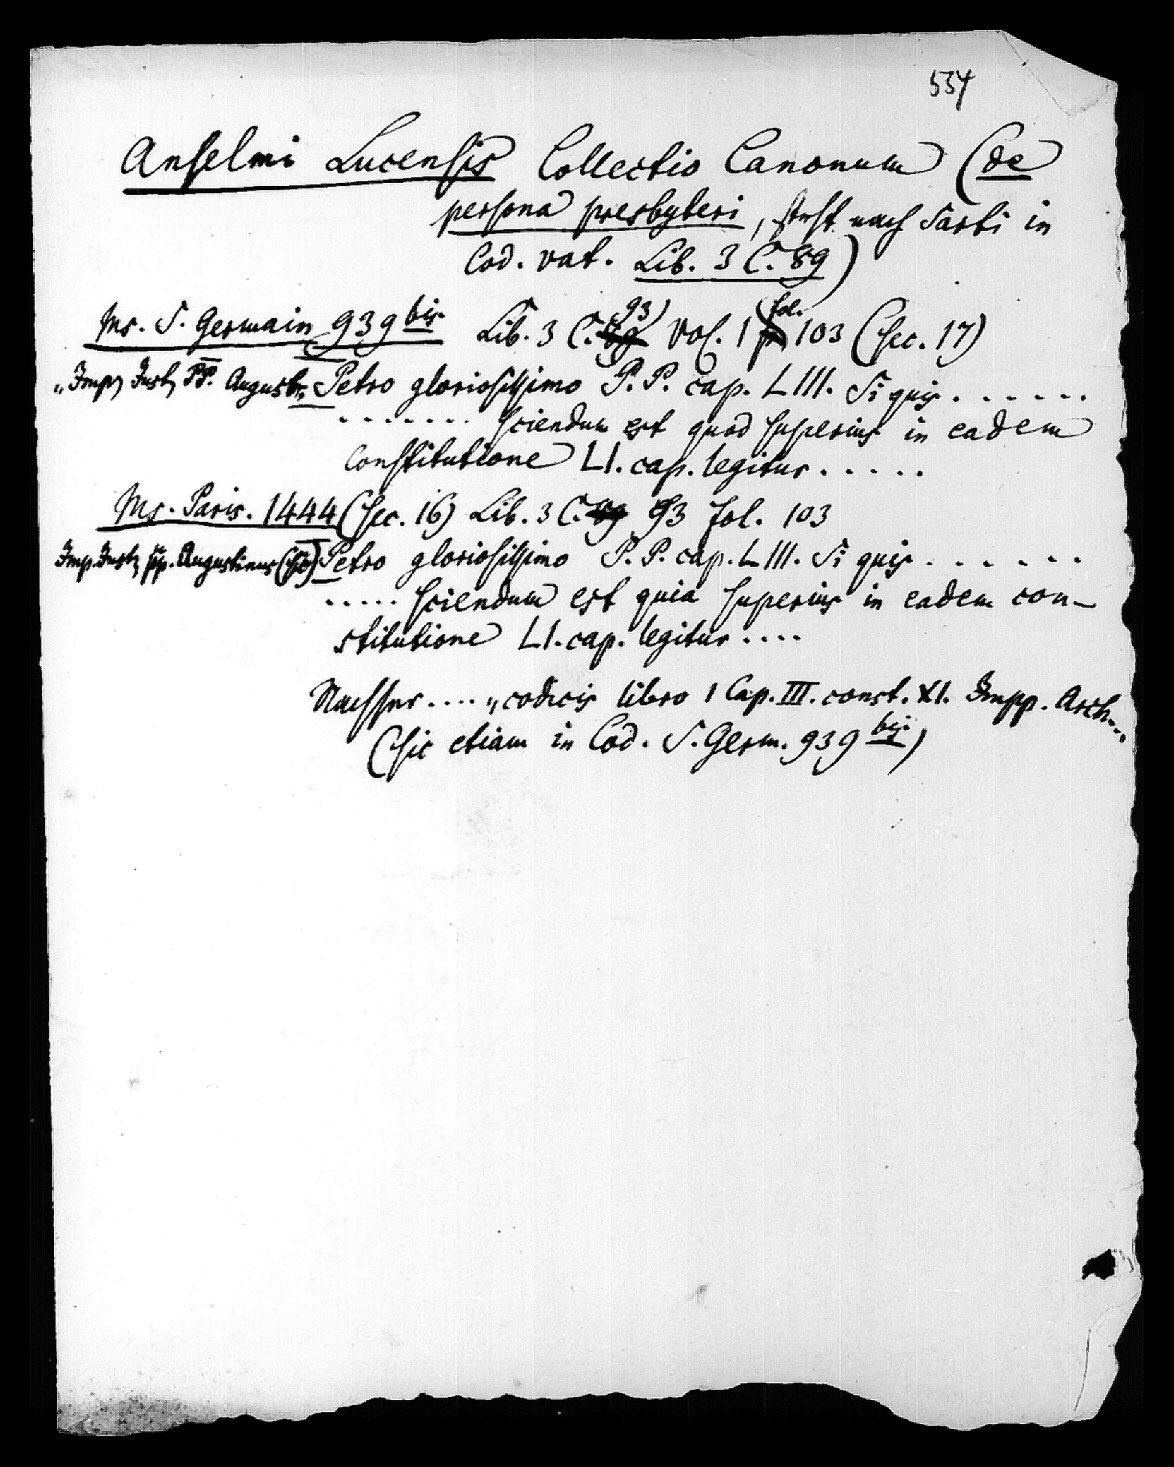 534
Anselmi Lucensis Collectio Canonum (de
persona presbyteri, steht nach Sarti in
Cod. vat. Lib. 3 C. 89)
Ms. S. Germain 939 bis. Lib. 3 C. 89 93) Vol. 1 fol. 103 (sec. 17)
„Imp Just PP. August. Petro gloriosissimo P. P. cap. LIII. Si quis . . . . . .
. . . . . . . sciendum est quod superius in eadem
constitutione LI. cap. legitur . . . . .
Ms. Paris. 1444 (sec. 16) Lib. 3 C. 89 93 fol. 103
Imp. Just pp. Augustinus (sic) Petro gloriosissimo P. P. cap. LIII. Si quis . . . . . .
. . . . . sciendum est quia superius in eadem con-
stitutione LI. cap. legitur . . . .
Nachher . . . . „codicis libro 1 Cap. III. const. XI. Impp. Arch....
(sic etiam in Cod. S. Germ. 939 bis.)